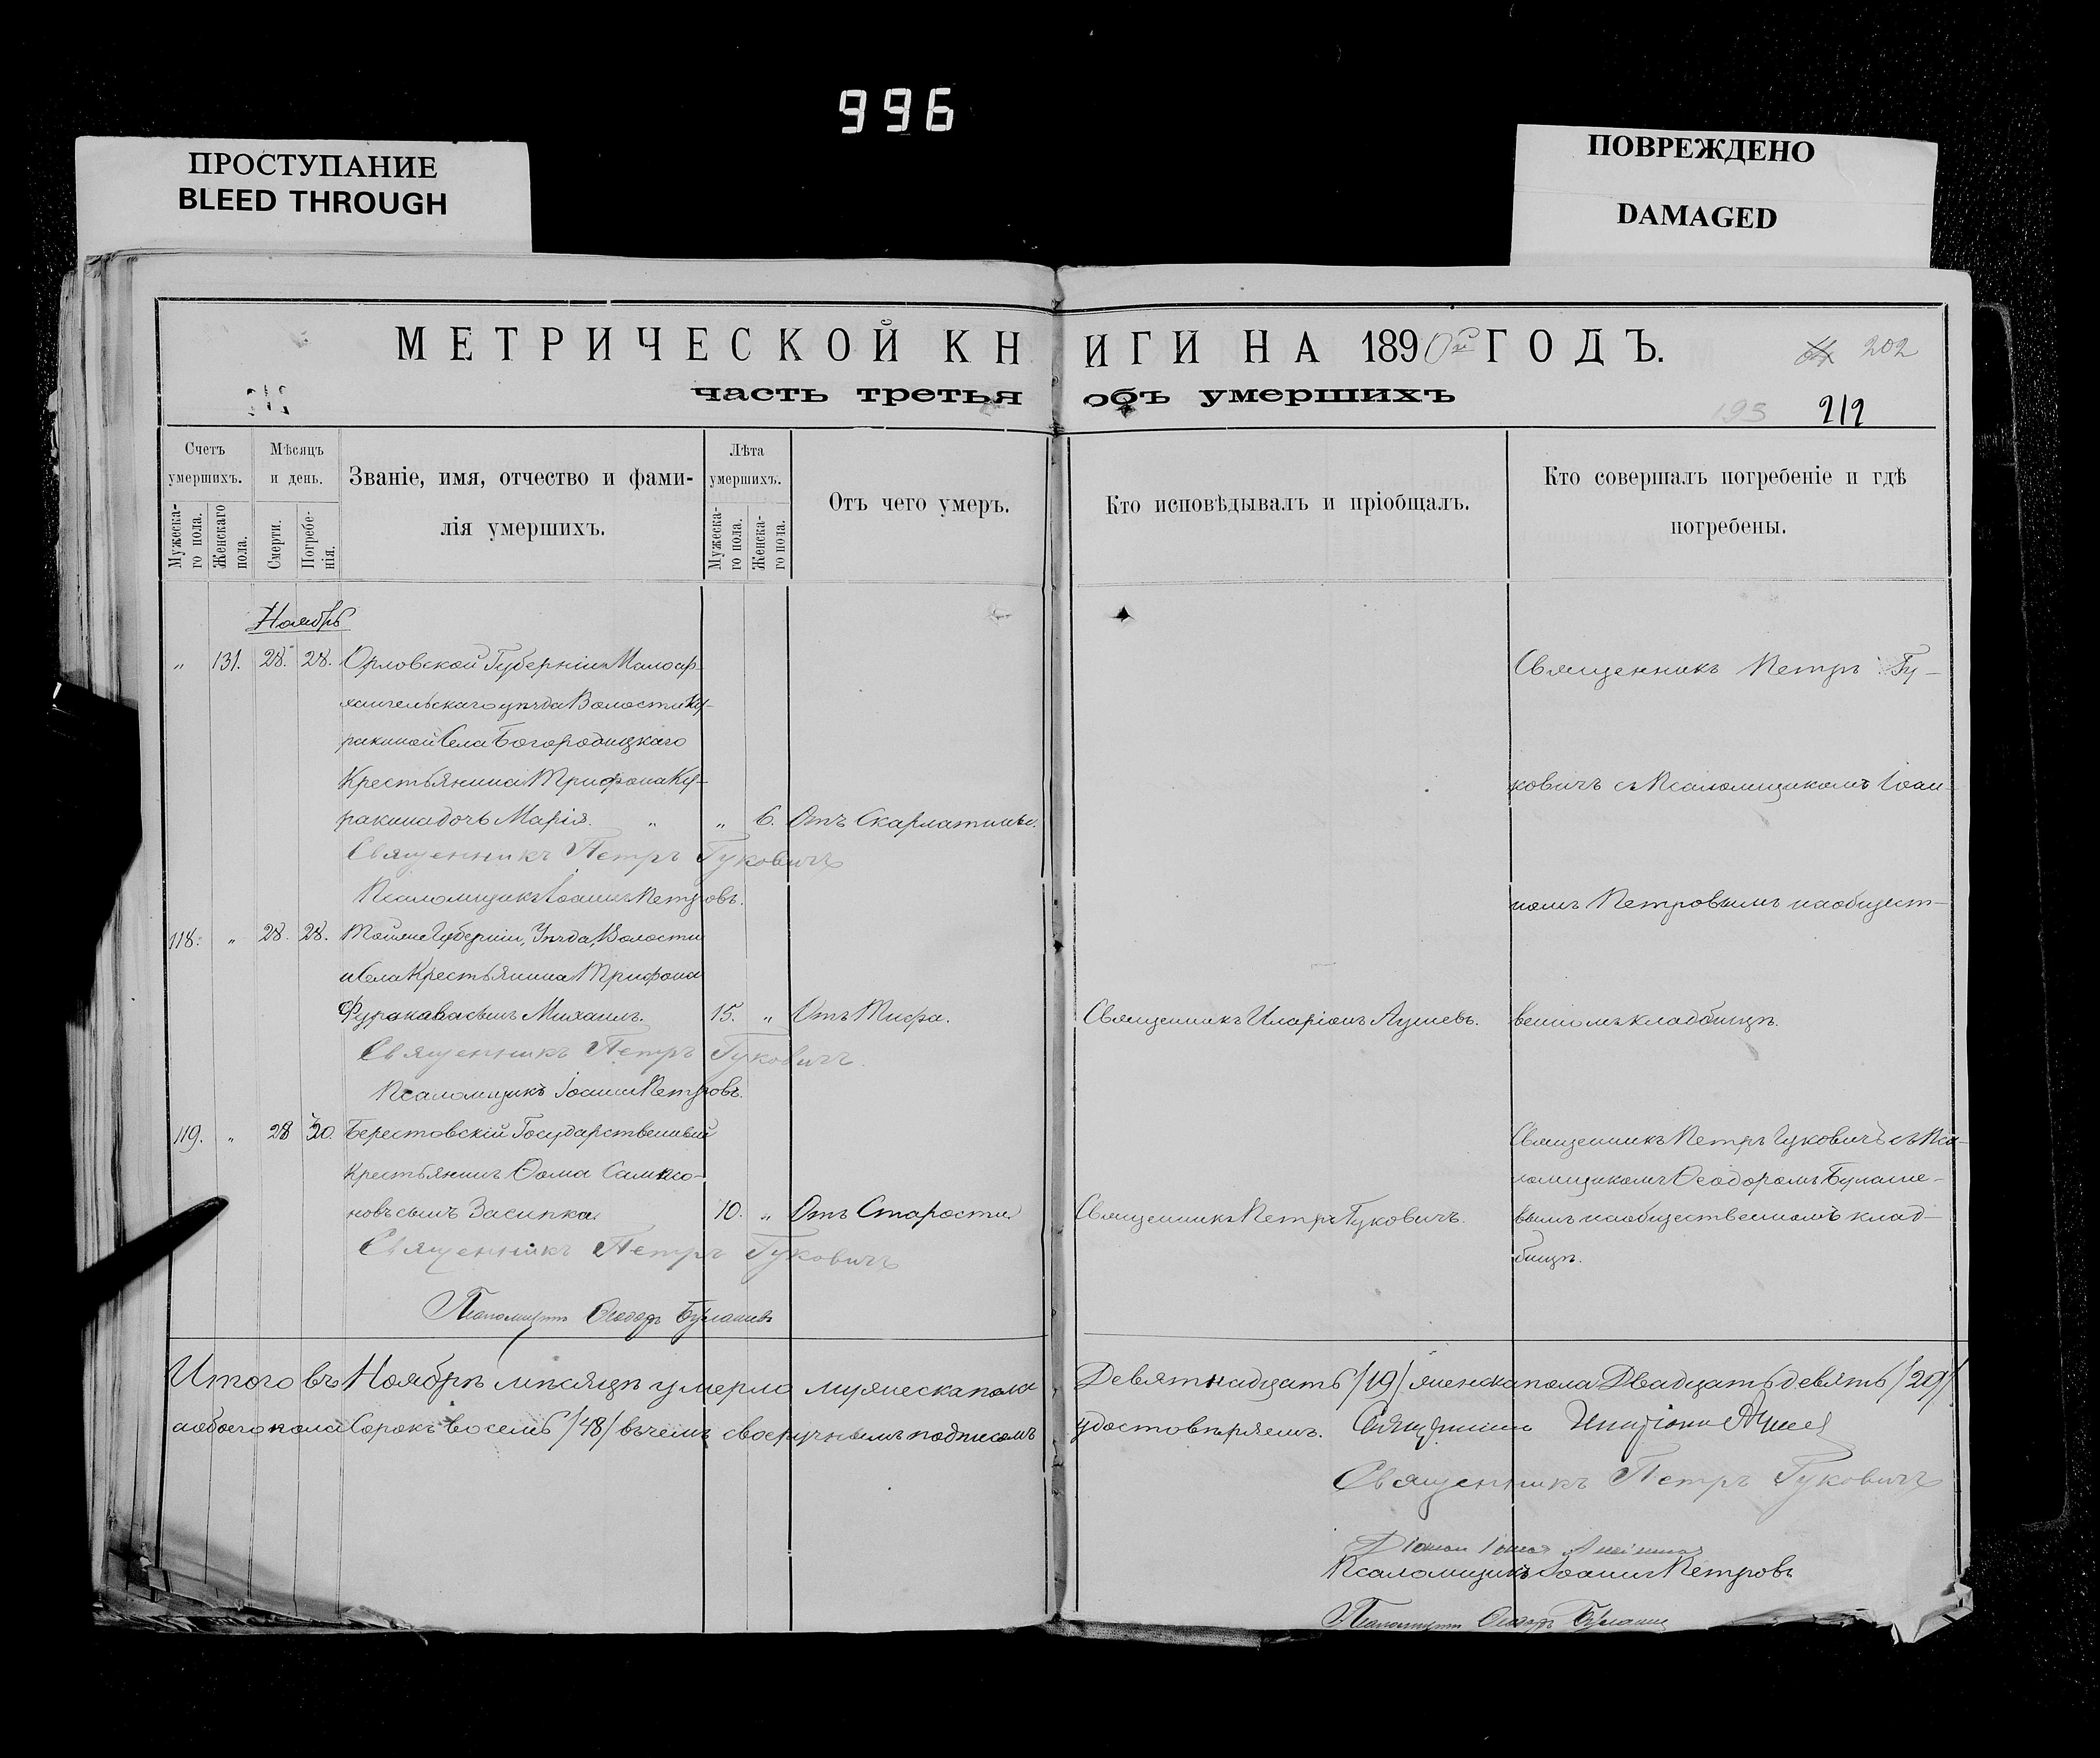 996
ПРОСТУПАНИЕ
BLEED THROUGH
ПОВРЕЖДЕНО
DAMAGED
МЕТРИЧЕСКОЙ КНИГИ НА 1890й ГОДЪ.
202
часть третья объ умершихъ
193 212
Счетъ умершихъ.
Мужеска-го пола.
Женскаго пола.
Мѣсяцъ и день.
Смерти.
Погребе-нія.
Званіе, имя, отчество и фами-
лія умершихъ.
Лѣта умершихъ.
Мужеска-го пола.
Женска-го пола.
Отъ чего умеръ.
Кто исповѣдывалъ и пріобщалъ.
Кто совершалъ погребеніе и гдѣ
погребены.
Ноябрь
„ 131. 28. 28. Орловской Губерніи Малоар-
хангельскаго уѣзда Волости Ку-
ракиной Села Богородицкаго
Крестьянина Трифона Ку-
ракина дочь Марія. „ „ 6. Отъ Скарлатины.
Священникъ Петръ Гу-
ковичъ съ Псаломщикомъ Іоан-
номъ Петровымъ на общест-
венномъ кладбищѣ.
Священникъ Петръ Гуковичъ
Псаломщикъ Іоаннъ Петровъ.
118. „ 28. 28. Тойже Губерніи, Уѣзда, Волости
и Села Крестьянина Трифона
Куракина сынъ Михаилъ. 15. „ Отъ Тифа. Священникъ Иларіонъ Ацшевъ.
Священникъ Петръ Гуковичъ
Псаломщикъ Іоаннъ Петровъ.
119. „ 28 30. Берестовскій Государственный
крестьянинъ Ѳома Сампсо-
новъ сынъ Засипка 70. „ Отъ Старости Священникъ Петръ Гуковичъ.
Священникъ Петръ Гуковичъ съ Пса-
ломщикомъ Ѳеодоромъ Булаше-
вымъ на общественномъ клад-
бищѣ.
Священникъ Петръ Гуковичъ
Псаломщикъ Ѳеодоръ Булашевъ
Итого въ Ноябрѣ мѣсяцѣ умерло мужеска пола Девятнадцать /19/ женска пола Двадцать девять /29/
а обоего пола Сорокъ восемь /48/ въ чемъ своеручнымъ подписомъ удостовѣряемъ. Священникъ Иларіонъ
Священникъ Петръ Гуковичъ
Псаломщикъ Іоаннъ Петровъ
Псаломщикъ Ѳеодоръ Булашевъ